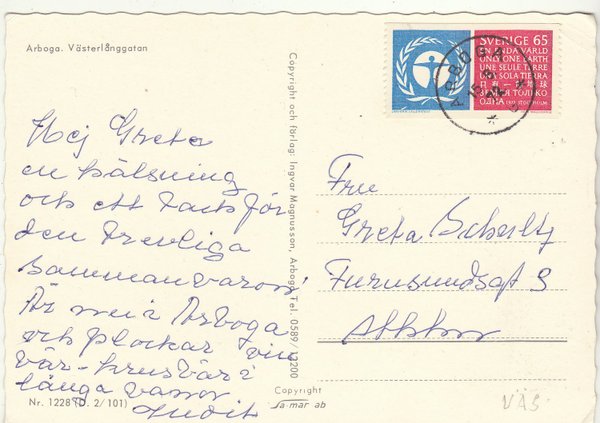 Arboga. Västerlånggatan
SVERIGE 65
EN ENDA VÄRLD
ONLY ONE EARTH
UNE SEULE TERRE
UNA SOLA TIERRA
ARBOGA
15
72
Hej Greta
en hälsning
och ett tack för
den trevliga
sammanvaron!
Är nu i Arboga
och plockar
vin-
bär-krusbär i
långa banor
Judit
Copyright och förlag: Ingvar Magnusson, Arboga Tel. 0589/12200
Fru
Greta Schultz
Furusundsgt 9
Sthlm
Copyright
Sa-mar ab
Nr. 1228 (D. 2/101)
VÄS